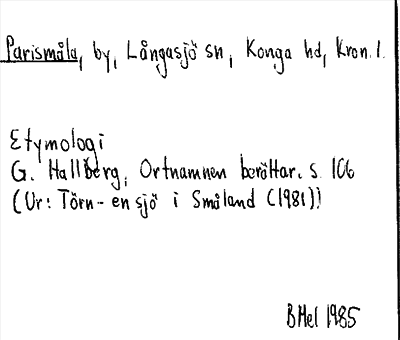 Parismåla, by, Långasjö sn, Konga hd, Kron. l.
Etymologi
G. Hallberg, Ortnamnen berättar. s. 106
(Ur: Törn - en sjö i Småland (1981))
BHel 1985